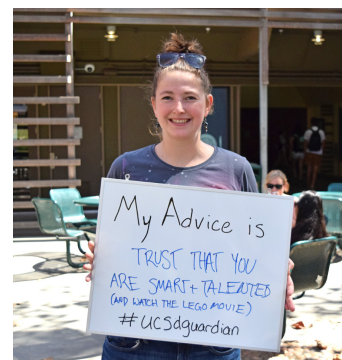 My Advice is
TRUST THAT YOU
ARE SMART + TALENTED
(AND WATCH THE LEGO MOVIE)
#UCSdguardian